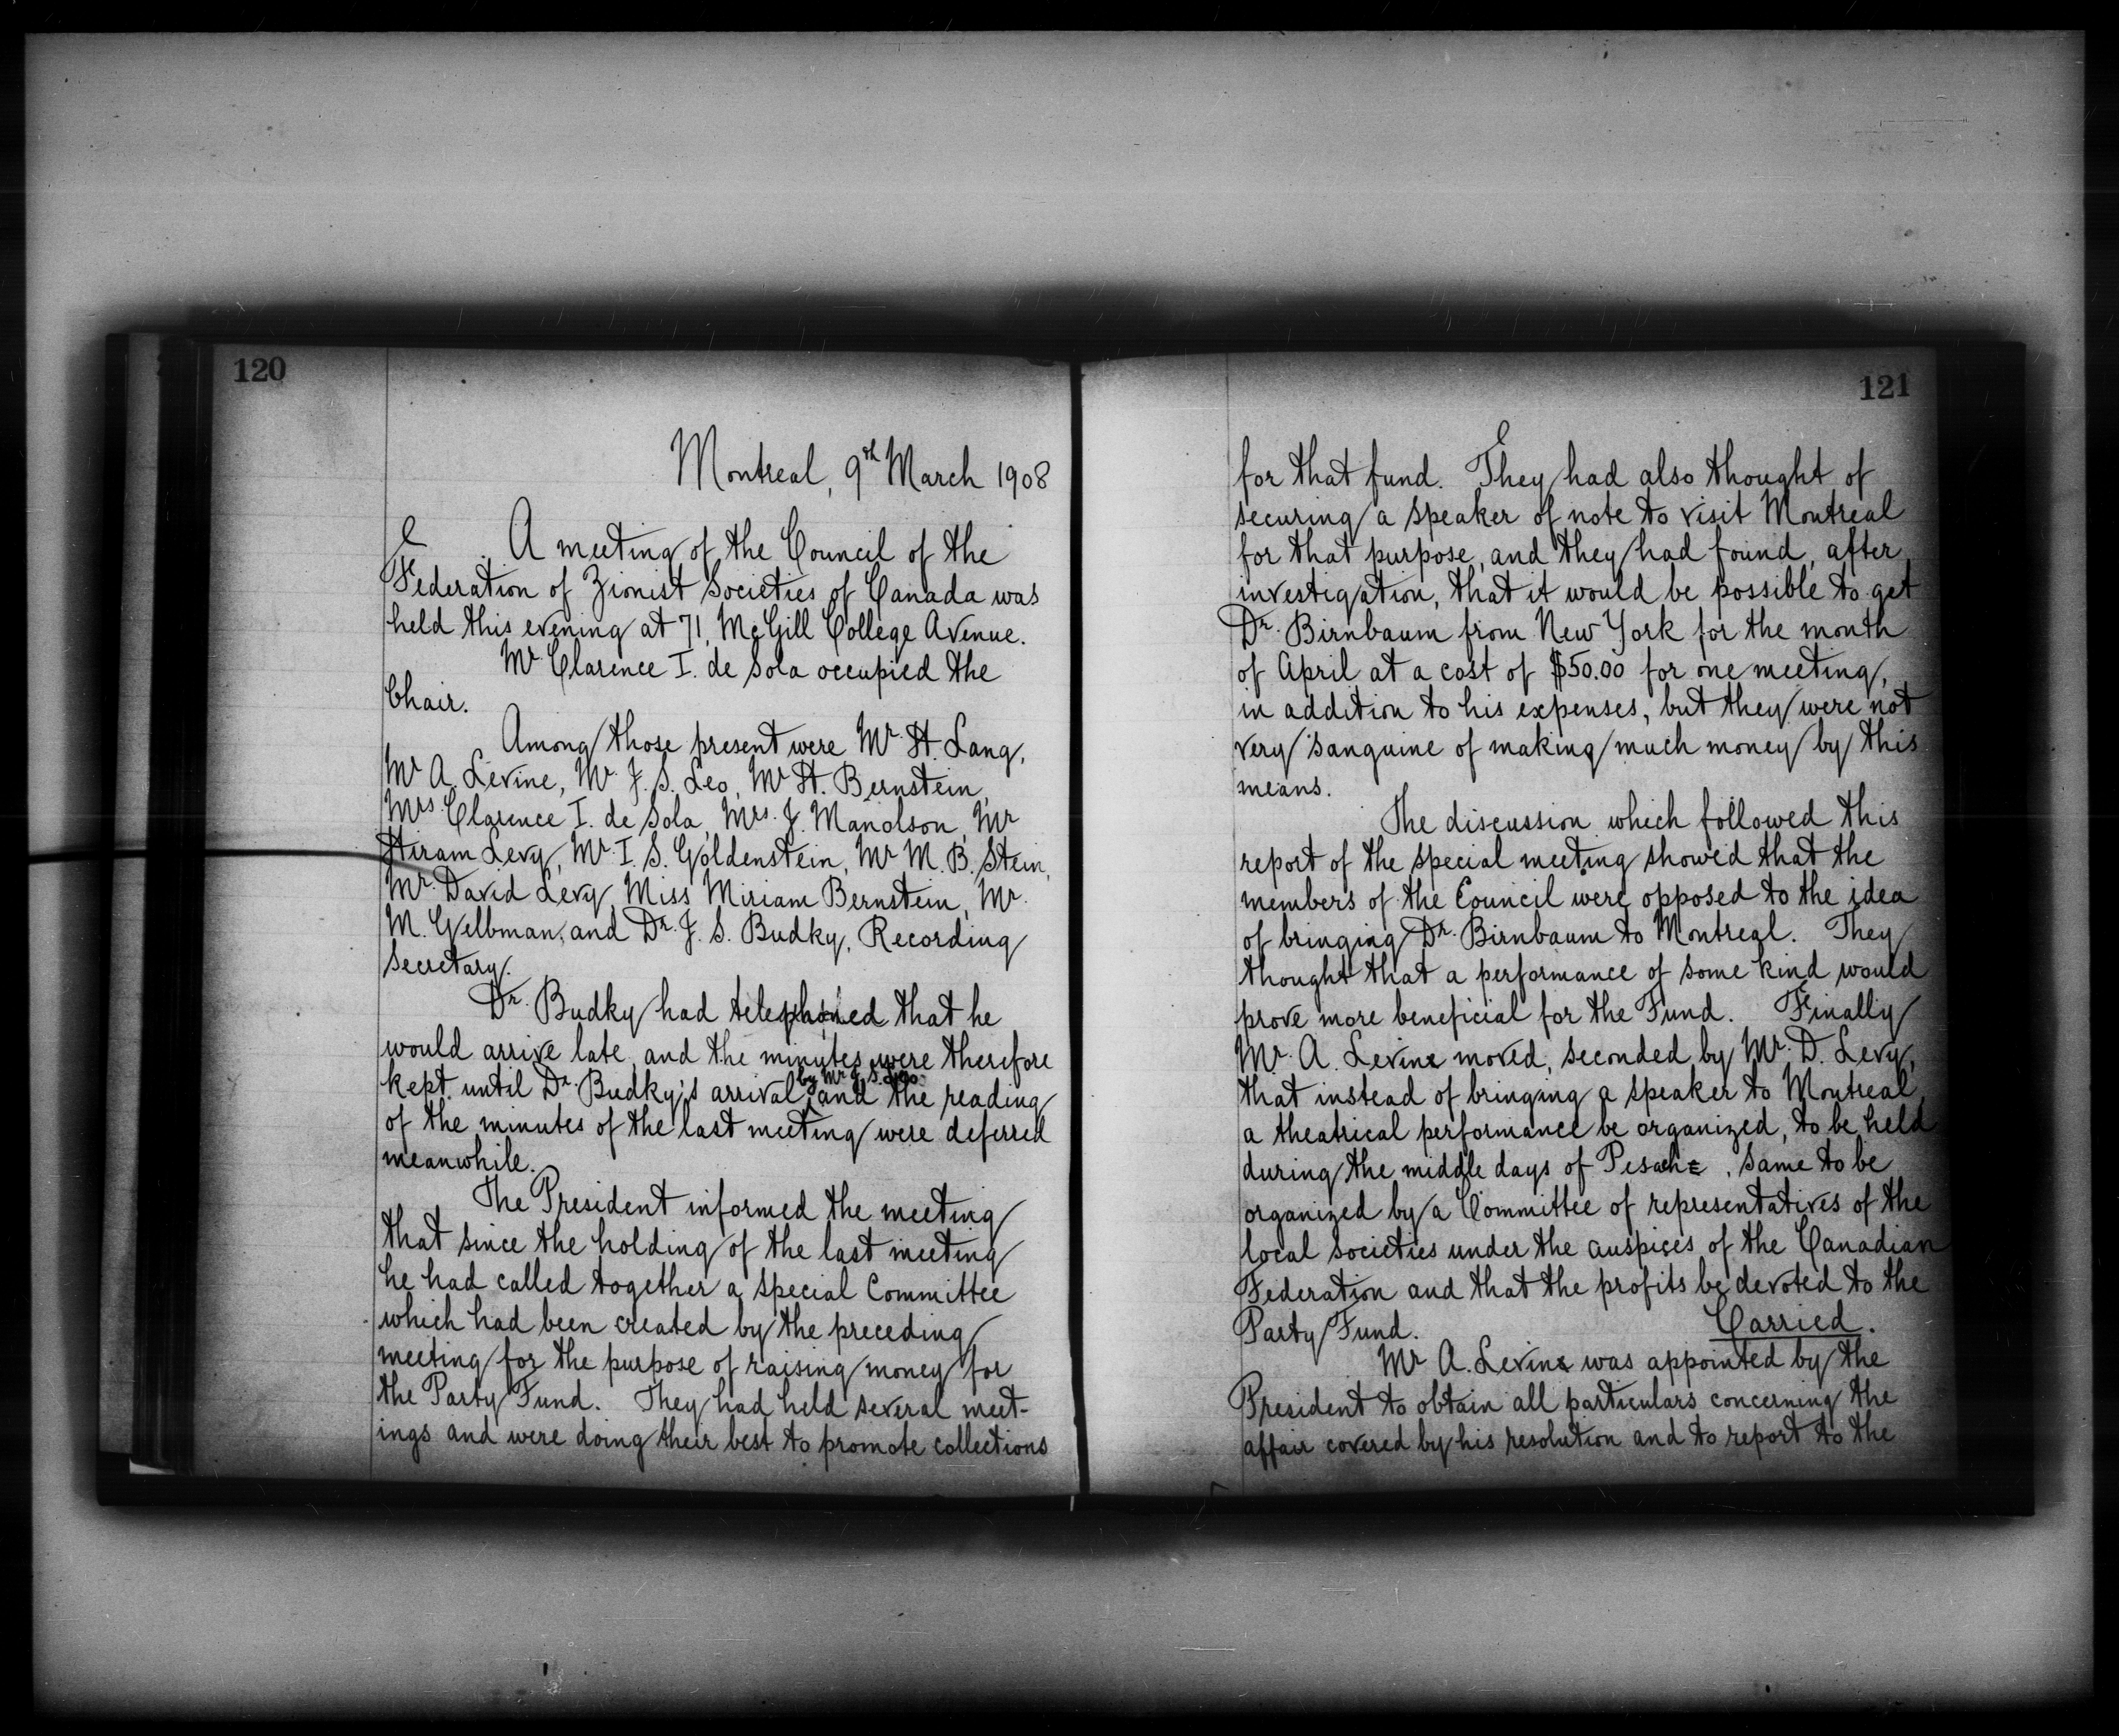 120
Montreal, 9th March 1908
A meeting of the Council of the
Federation of Zionist Societies of Canada was
held this evening at 71, McGill College Avenue.
Mr Clarence I. de Sola occupied the
Chair.
Among those present were Mr. H. Lang,
Mr A. Levine, Mr. J. S. Leo, Mr H. Bernstein,
Mrs Clarence I. de Sola, Mrs. J. Manolson, Mr
Hiram Levy, Mr. I. S. Goldenstein, Mr M. B. Stein,
Mr. David Levy, Miss Miriam Bernstein, Mr.
M. Gelbman, and Dr. J. S. Budky, Recording
Secretary.
Dr. Budky had telephoned that he
would arrive late, and the minutes were therefore
by Mr J. S. Leo
kept until Dr. Budky's arrival, and the reading
of the minutes of the last meeting were deferred
meanwhile.
The President informed the meeting
that since the holding of the last meeting
he had called together a special Committee
which had been created by the preceding
meeting for the purpose of raising money for
the Party Fund. They had held several meet-
ings and were doing their best to promote collections
121
for that fund. They had also thought of
securing a speaker of note to visit Montreal
for that purpose, and they had found, after
investigation, that it would be possible to get
Dr. Birnbaum from New York for the month
of April at a cost of $50.00 for one meeting,
in addition to his expenses, but they were not
very sanguine of making much money by this
means.
The discussion which followed this
report of the special meeting showed that the
members of the Council were opposed to the idea
of bringing Dr. Birnbaum to Montreal. They
thought that a performance of some kind would
prove more beneficial for the Fund. Finally
Mr. A. Levine moved, seconded by Mr. D. Levy,
that instead of bringing a speaker to Montreal,
a theatrical performance be organized, to be held
during the middle days of Pesach, same to be
organized by a Committee of representatives of the
local societies under the auspices of the Canadian
Federation and that the profits be devoted to the
Party Fund. Carried.
Mr A. Levine was appointed by the
President to obtain all particulars concerning the
affair covered by his resolution and to report to the